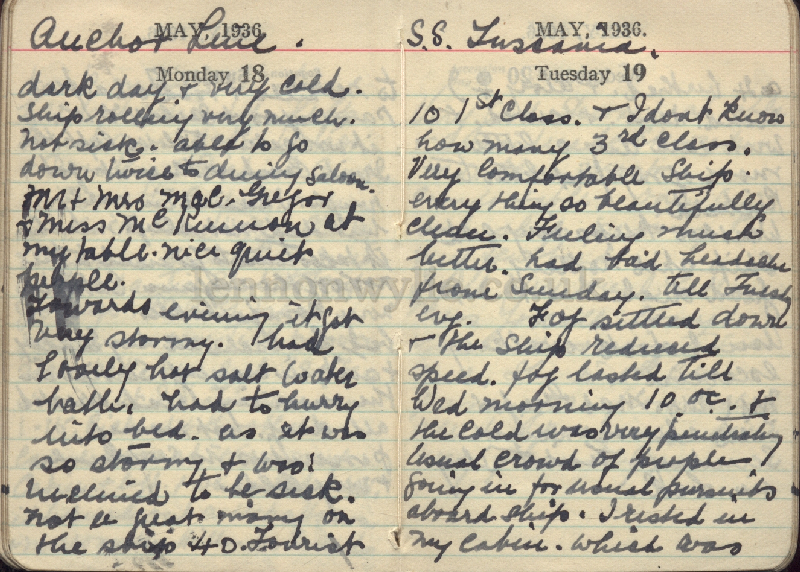 MAY, 1936.
Anchor Line.
Monday 18
dark day & very cold.
Ship rolling very much.
not sick. able to go
down twice to dining saloon.
Mr & Mrs McGregor
& Miss McKinnon at
my table. nice quiet
people.
Towards evening it got
very stormy. had
lovely hot salt water
bath. had to hurry
into bed. as it was
so stormy & was
inclined to be sick.
not a great many on
the ship 40. Tourist
MAY, 1936.
S.S. Tuscania.
Tuesday 19
10 1st Class. & I dont know
how many 3rd Class.
Very Comfortable Ship.
every thing so beautifully
clean. Feeling much
better. had bad headache
from Sunday. till Tuesy
evg. Fog settled down
& the Ship reduced
speed. fog lasted till
Wed morning 10 oc. &
the cold was very penetrating
Usual crowd of people
going in for usual pursuits
aboard ship. I rested in
my cabin. which was
lennonwylie.co.uk